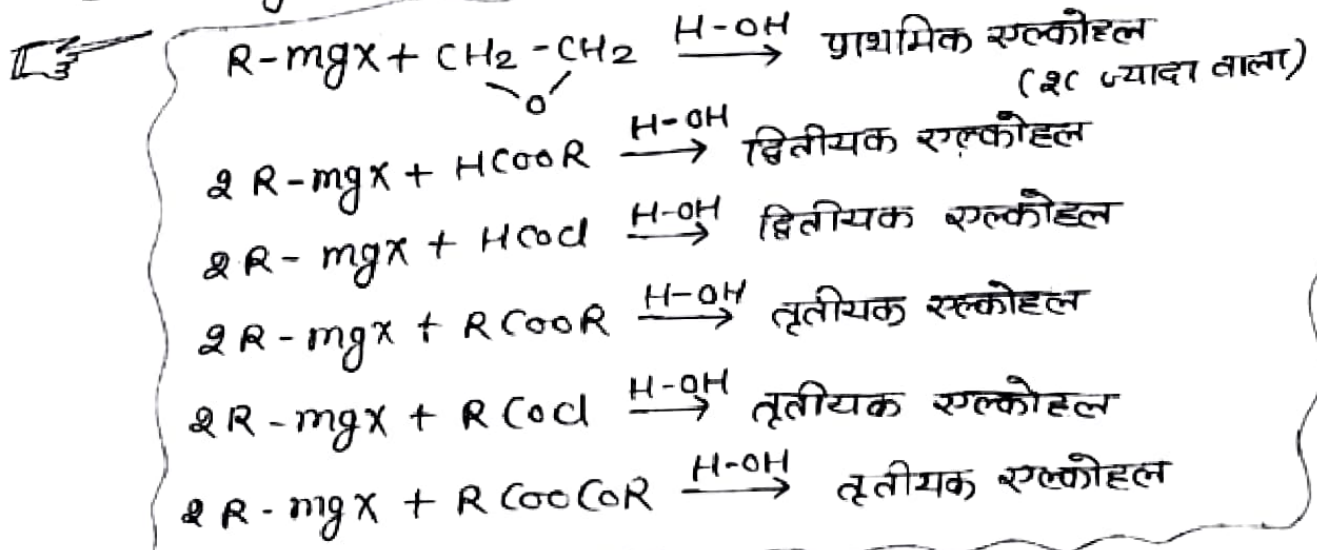 R-mgx + CH2-CH2 H-OH → प्राथमिक एल्कोहल
O (2C ज्यादा वाला)
2 R-mgx + HCOOR H-OH → द्वितीयक एल्कोहल
2 R-mgx + HCOCl H-OH → द्वितीयक एल्कोहल
2 R-mgx + RCOOR H-OH → तृतीयक एल्कोहल
2 R-mgx + RCOCl H-OH → तृतीयक एल्कोहल
2 R-mgx + RCOOCOR H-OH → तृतीयक एल्कोहल